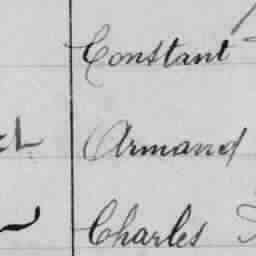 Constant
Armand
Charles